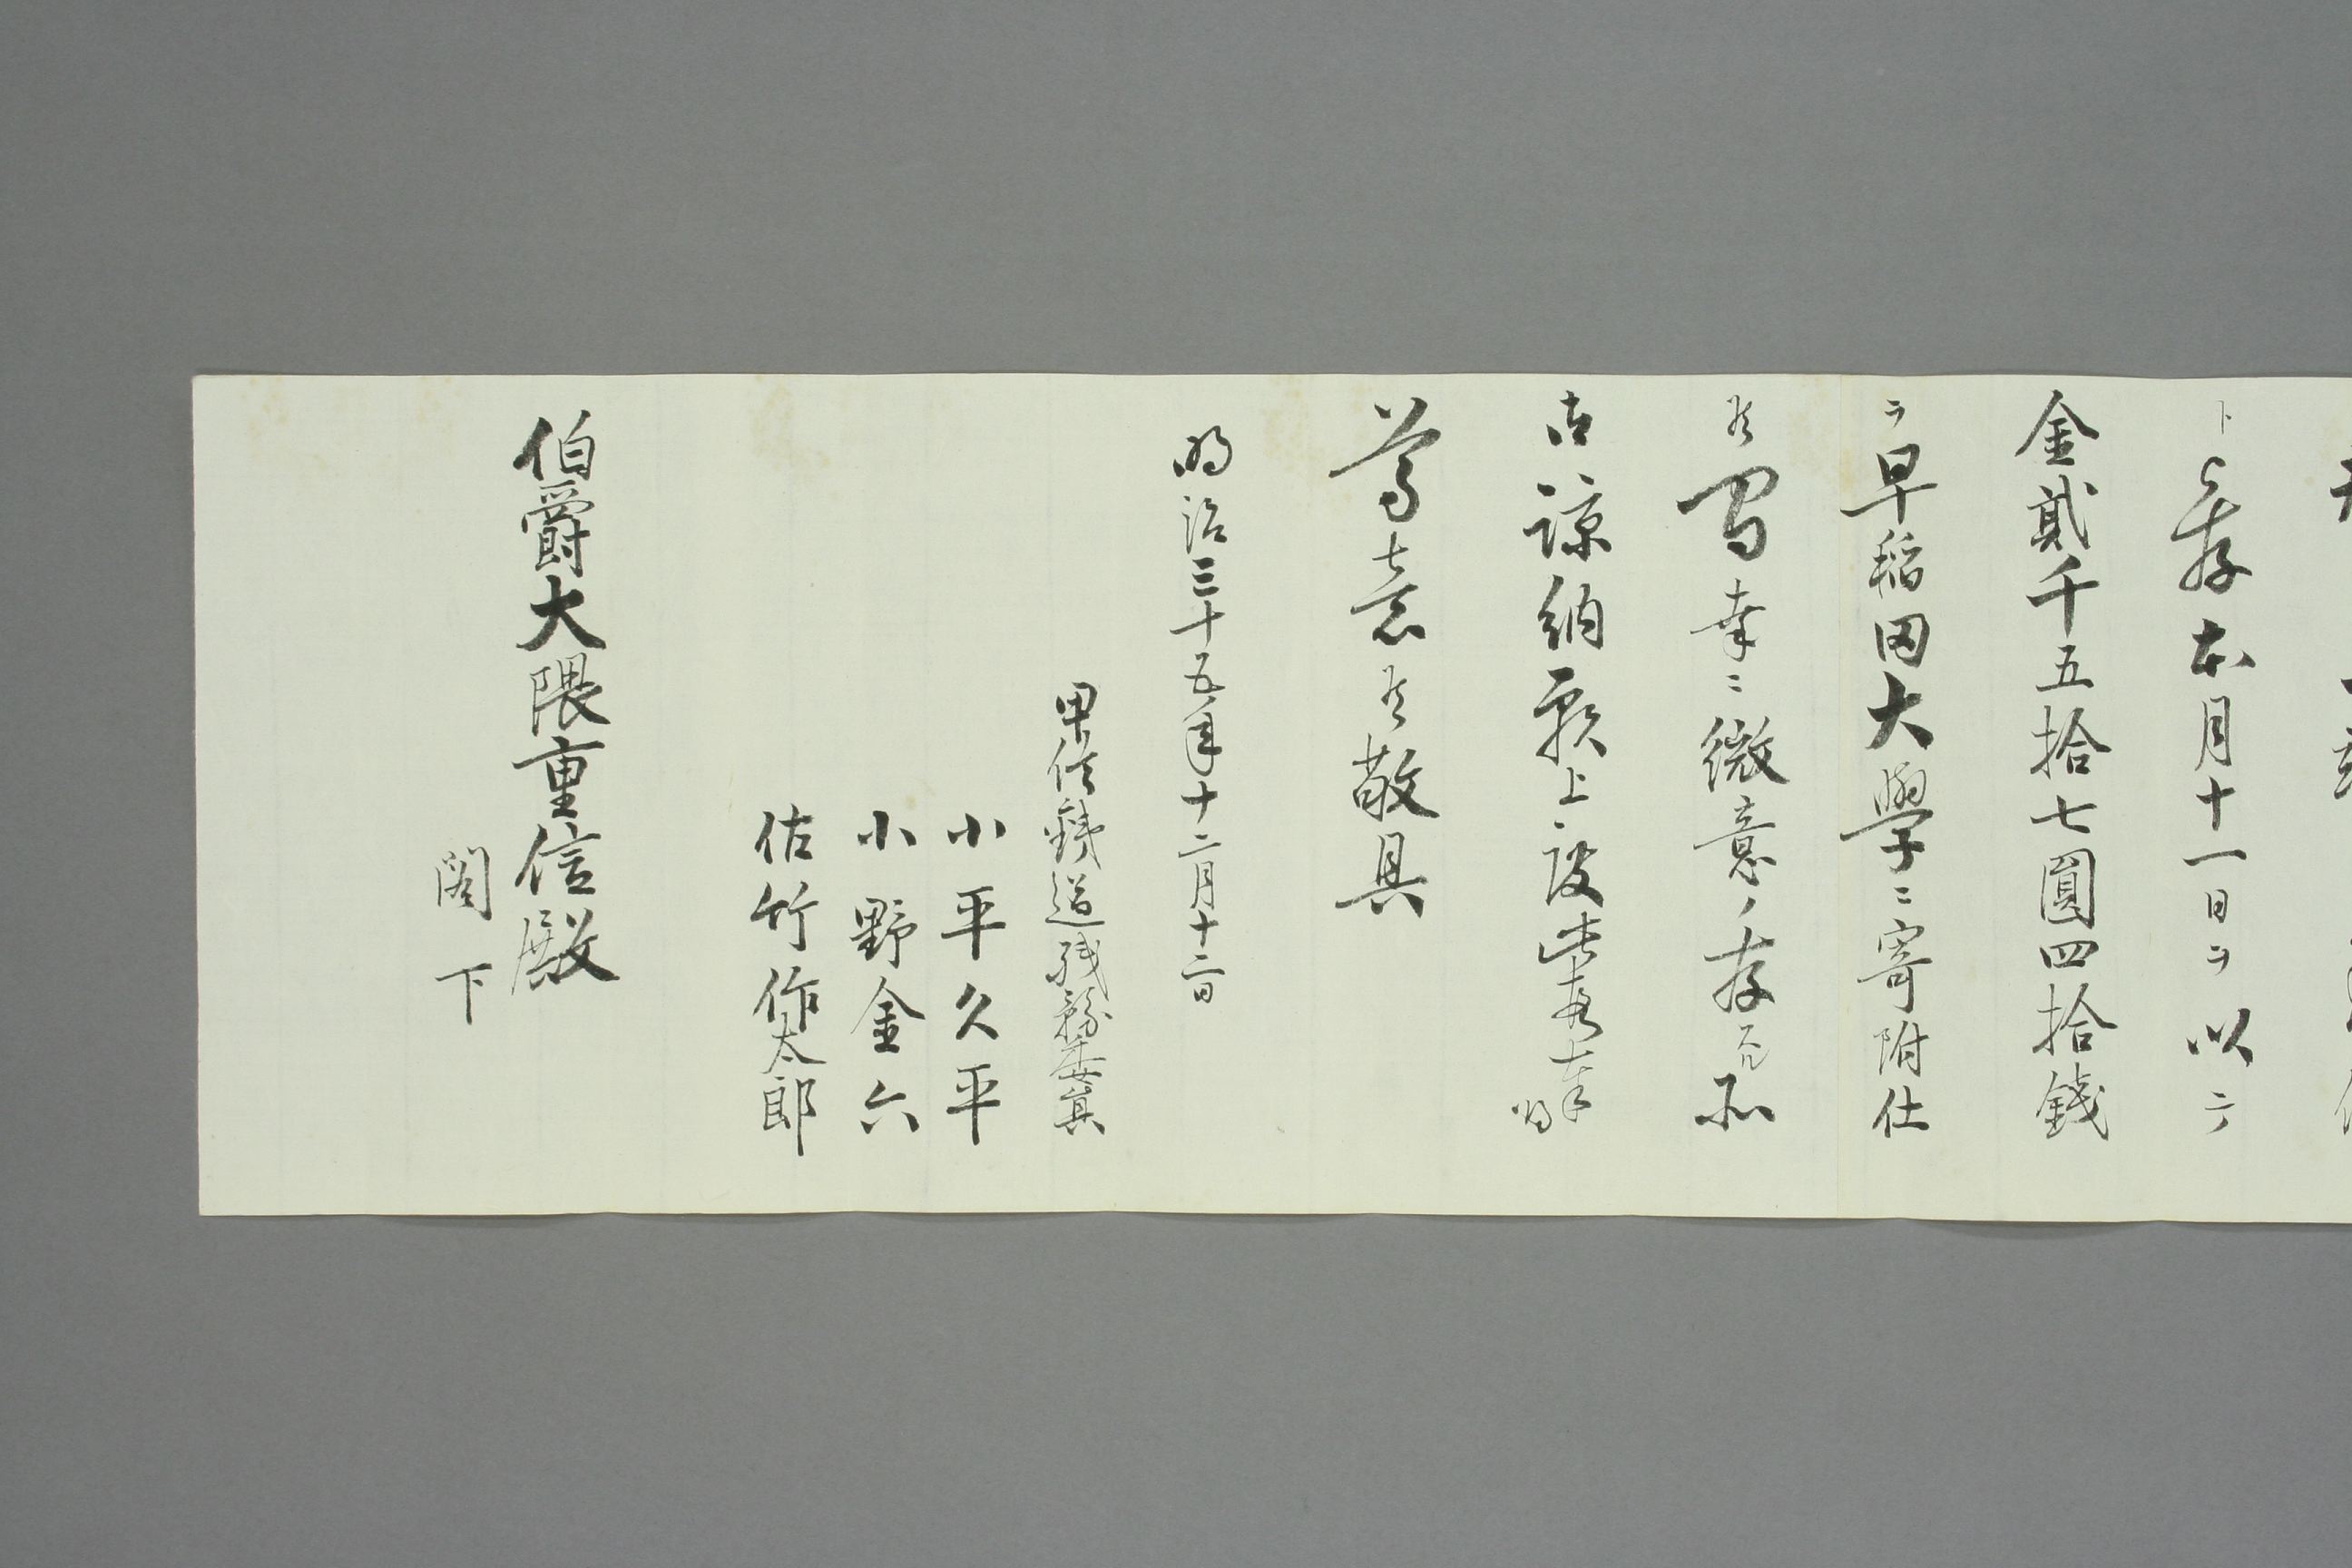 ト存本月十一日ヲ以テ
金貳千五拾七圓四拾錢
ヲ早稲田大學ニ寄附仕
候間幸ニ微意ノ存
諒納願上度此段
尊意候敬具
明治三十五年十二月十二日
甲信鐵道残務委員
小平久平
小野金六
佐竹作太郎
伯爵大隈重信殿
閣下